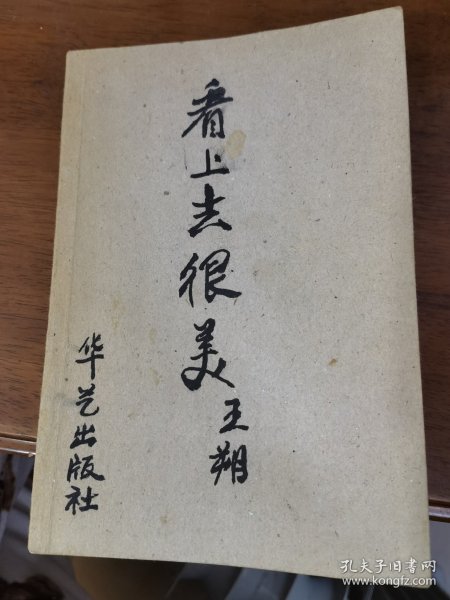 看上去很美
王朔
华艺出版社
孔夫子旧书网
www.kongfz.com